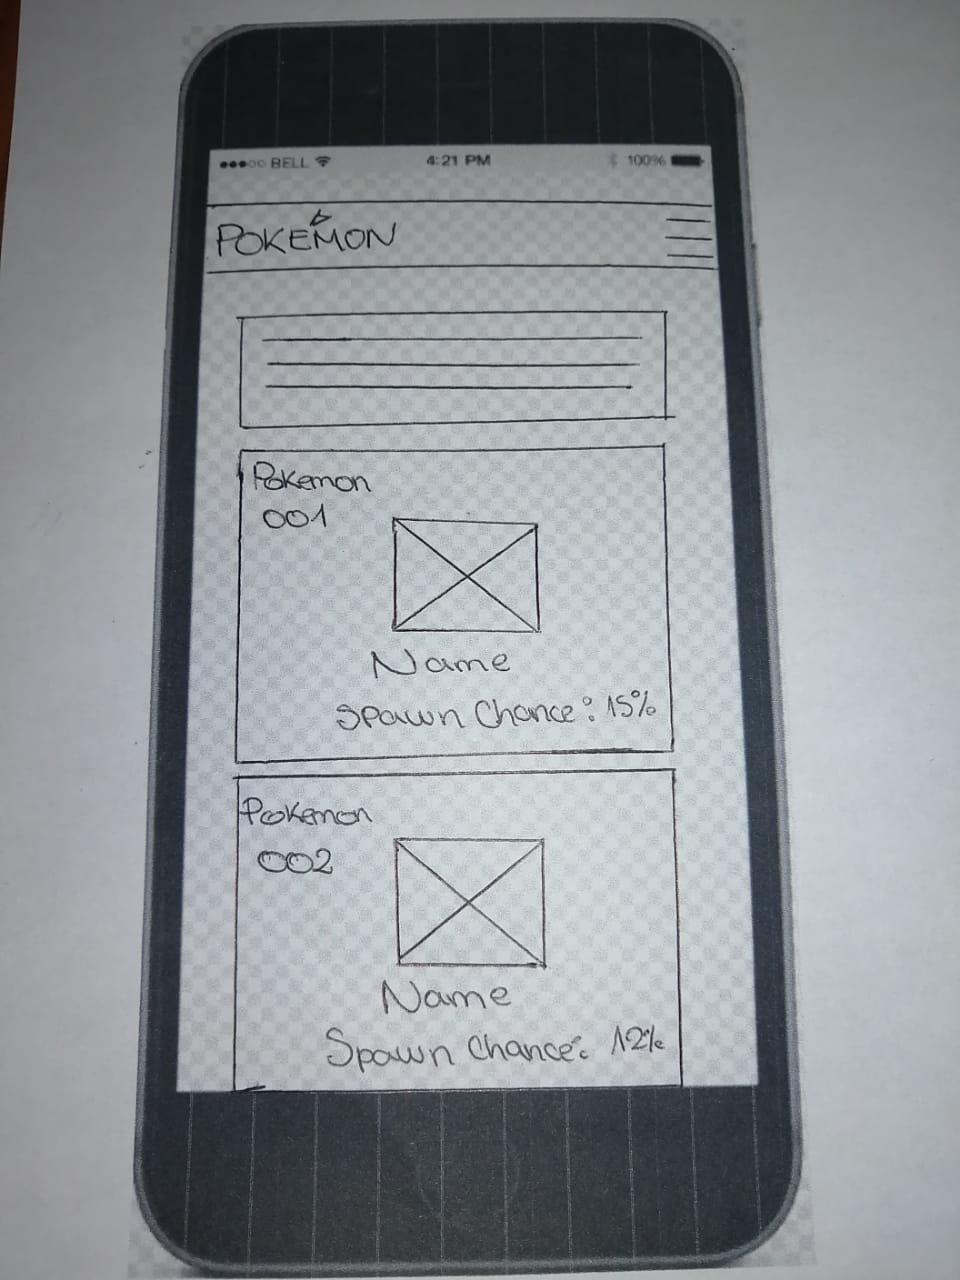 BELL 4:21 PM 100%
POKÉMON
Pokemon
001
Name
Spawn Chance: 15%
Pokemon
002
Name
Spawn Chance: 12%